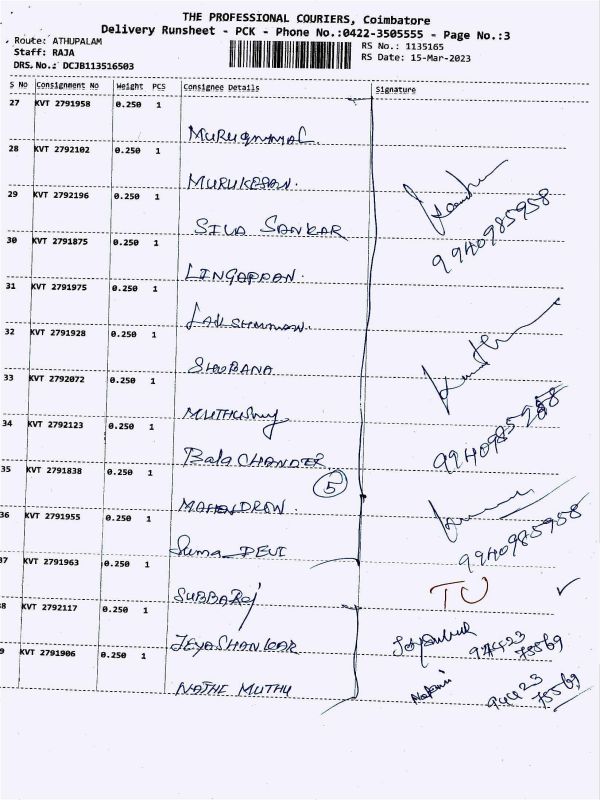 THE PROFESSIONAL COURIERS, Coimbatore
Delivery Runsheet - PCK - Phone No.:0422-3505555 - Page No.:3
Route: ATHUPALAM
RS No.: 1135165
Staff: RAJA
RS Date: 15-Mar-2023
DRS. No.: DCJB113516503
S No Consignment No Weight PCS Consignee Details Signature
27 KVT 2791958 0.250 1
28 KVT 2792102 0.250 1
MURUKESAN.
29 KVT 2792196 0.250 1
SIVA SANKAR
9940985958
30 KVT 2791875 0.250 1
LINGAPPAN.
31 KVT 2791975 0.250 1
32 KVT 2791928 0.250 1
SHOBANA
33 KVT 2792072 0.250 1
34 KVT 2792123 0.250 1
Bala CHANDER
5
35 KVT 2791838 0.250 1
36 KVT 2791955 0.250 1
Suma DEVI
9940985958
37 KVT 2791963 0.250 1
SUBBARaj
8 KVT 2792117 0.250 1
JEYASHANKAR
94423
75569
9 KVT 2791906 0.250 1
NATHE MUTHU
94423
75569